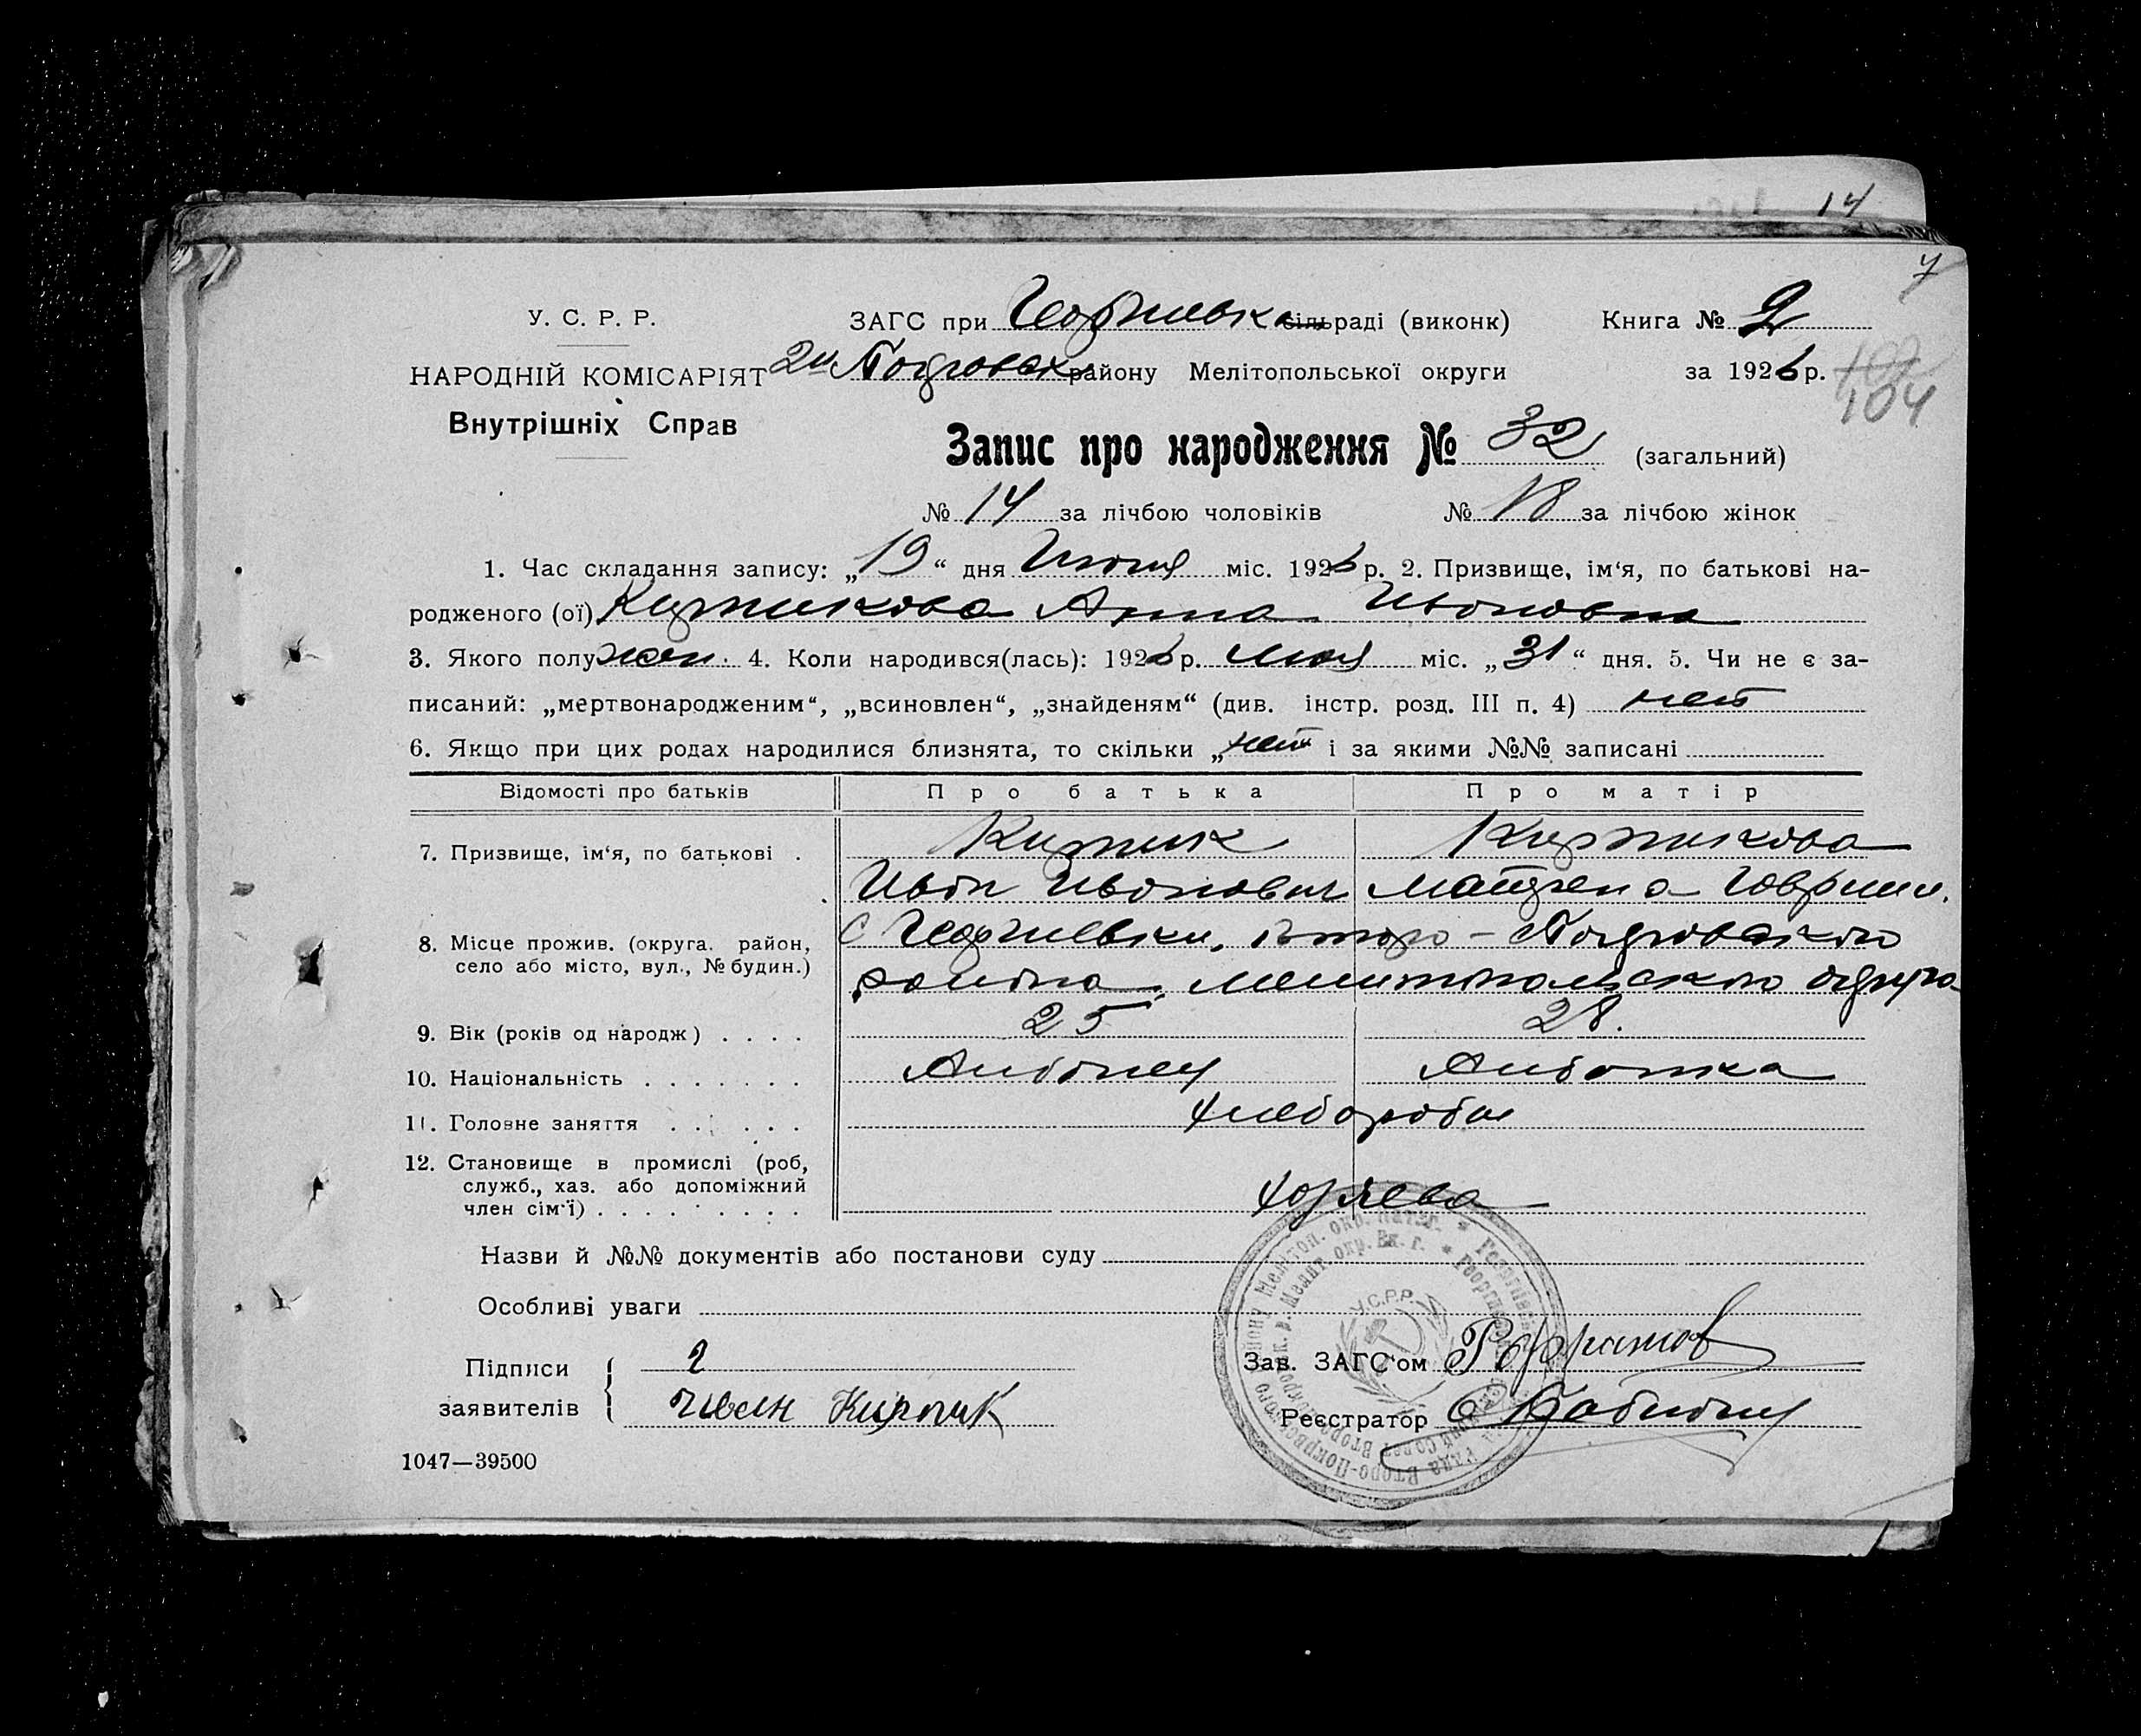 14
7
У. С. Р. Р.
ЗАГС при Георгиевка сільраді (виконк)
Книга № 2
НАРОДНІЙ КОМІСАРІЯТ
2й Покровск району Мелітопольської округи
за 1926 р.
104
Внутрішніх Справ
Запис про народження № 32 (загальний)
№ 14 за лічбою чоловіків № 18 за лічбою жінок
1. Час складання запису: „19“ дня Июня міс. 1926 р. 2. Призвище, ім‘я, по батькові на-
родженого (ої) Анна Ивановна
3. Якого полу жен. 4. Коли народився(лась): 1926 р. мая міс. „31“ дня. 5. Чи не є за-
писаний: „мертвонародженим“, „всиновлен“, „знайденям“ (див. інстр. розд. III п. 4) нет
6. Якщо при цих родах народилися близнята, то скільки „нет“ і за якими №№ записані
Відомості про батьків Про батька Про матір
7. Призвище, ім‘я, по батькові .
Иван Иванович Матрена Гаврил.
8. Місце прожив. (округа. район,
село або місто, вул., № будин.)
с Георгиевки, Второ-Покровского
района, Мелитопольского округа
9. Вік (років од народж) . . . . 25 28.
10. Національність . . . . . . . Албанец Албанка
11. Головне заняття . . . . . . хлеборобы
12. Становище в промислі (роб,
служб., хаз. або допоміжний
член сім‘ї) . . . . . . . . .
Назви й №№ документів або постанови суду
Особливі уваги
У.С.Р.Р.
Підписи
заявителів
Иван
Зав. ЗАГС‘ом
Реєстратор
1047—39500